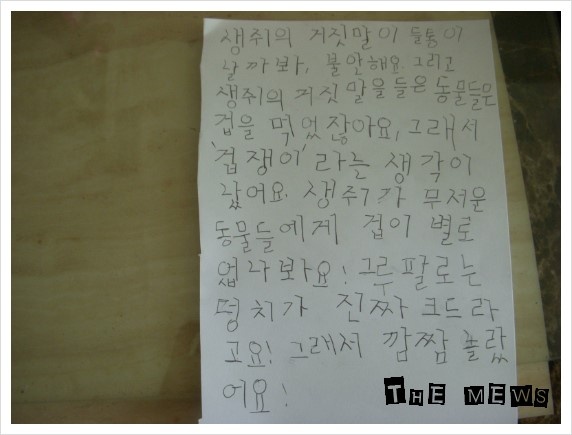 생쥐의 거짓말이 들통이
날까봐, 불안해요. 그리고
생쥐의 거짓말을들은 동물들은
겁을 먹었잖아요, 그래서
'겁쟁이'라는 생각이
났어요. 생쥐가 무서운
동물들에게 겁이 별로
없나봐요! 그루팔로는
덩치가 진짜 크드라
고요! 그래서 깜짝 놀랐
어요!
THE MEWS